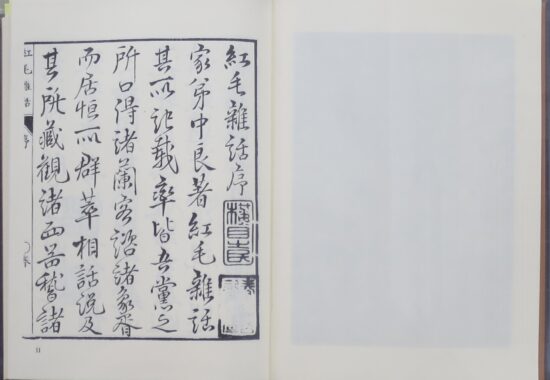 紅毛雜話序
家弟中良著紅毛雜話
其所記載率皆吾黨之
所口得諸蘭客諮諸象胥
而居恒所群萃相話說及
其所藏觀諸稽諸
紅毛雜話 序
11